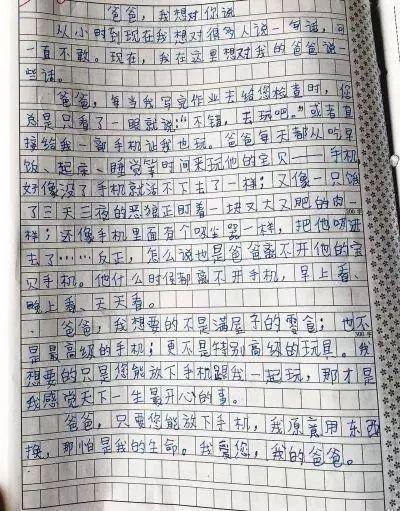 爸爸，我想对你说
从小时到现在我想对很多人说一句话，可一
直不敢。现在，我在这里想对我的爸爸说一
些话。
爸爸，每当我写完作业去给您检查时，您
总是只看了一眼就说：“不错，去玩吧。”或者直
接给我一部手机让我也玩。爸爸每天都从吃早
饭、起床、睡觉等时间来玩他的宝贝——手机
好像没了手机就活不下去了一样；又像一只饿
了三天三夜的恶狼正盯着一块又大又肥的肉一
样；还像手机里面有个吸尘器一样，把他吸进
去了……反正，怎么说也是爸爸离不开他的宝
贝手机。他什么时候都离不开手机，早上看、
晚上看、天天看。
爸爸，我想要的不是满屋子的零食；也不
是最高级的手机；更不是特别高级的玩具。我
想要的只是您能放下手机跟我一起玩，那才是
我感觉天下一生最开心的事。
爸爸，只要您能放下手机，我愿意用东西
换，那怕是我的生命。我爱您，我的爸爸。
300